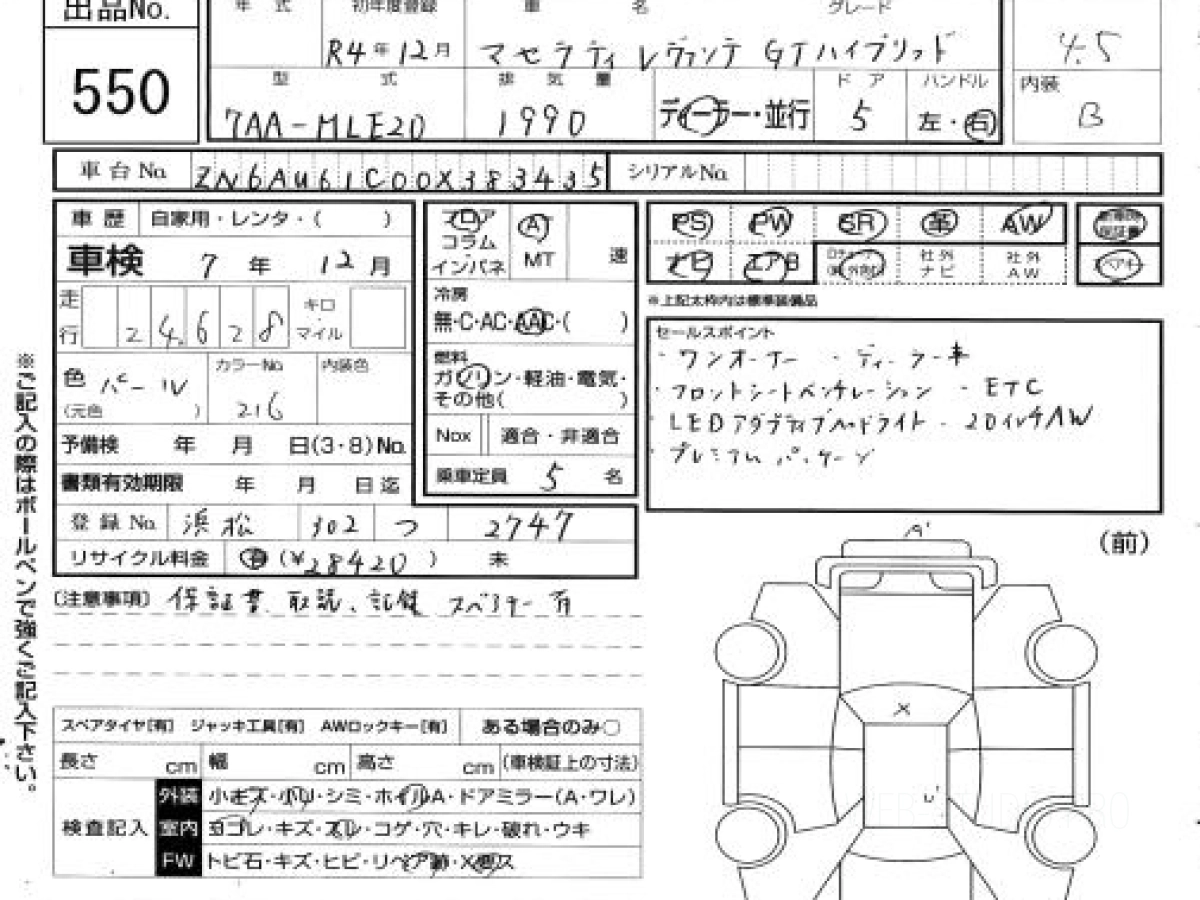 出品No. 年 式 初年度登録 車 名 グレード
550 R4年12月 マセラティ レヴァンテ GTハイブリッド 4.5
型 式 排 気 量 ド ア ハンドル 内装
7AA-MLE20 1990 ディーラー・並行 5 左・右 B
車台No. ZN6AU61C00X383435 シリアルNo.
車 歴 自家用・レンタ・( )
車検 7 年 12 月
走行 24,628 キロ・マイル
色 パール カラーNo 216 内装色
(元色 )
予備検 年 月 日(3・8)No.
書類有効期限 年 月 日迄
登録No. 浜松 302 つ 2747
リサイクル料金 有 (¥28420) 未
フロア コラム インパネ
A MT 速
冷房
無・C・AC・AAC・( )
燃料
ガソリン・軽油・電気・
その他( )
Nox 適合・非適合
乗車定員 5 名
PS PW SR 革 AW
ナビ エアB 社外ナビ 社外AW
※上記太枠内は標準装備品
セールスポイント
・ワンオーナー ・ディーラー車
・フロントシートベンチレーション ・ETC
・LEDアダプティブヘッドライト ・20インチAW
・プレミアムパッケージ
(注意事項) 保証書、取説、記録 スペアキー有
※ご記入の際はボールペンで強くご記入下さい。
(前)
A'
X
U'
スペアタイヤ[有] ジャッキ工具[有] AWロックキー[有] ある場合のみ○
長さ cm 幅 cm 高さ cm (車検証上の寸法)
検査記入
外装 小キズ・小凹・シミ・ホイルA・ドアミラー(A・ワレ)
室内 ヨゴレ・キズ・スレ・コゲ・穴・キレ・破れ・ウキ
FW トビ石・キズ・ヒビ・リペア跡・X要ス